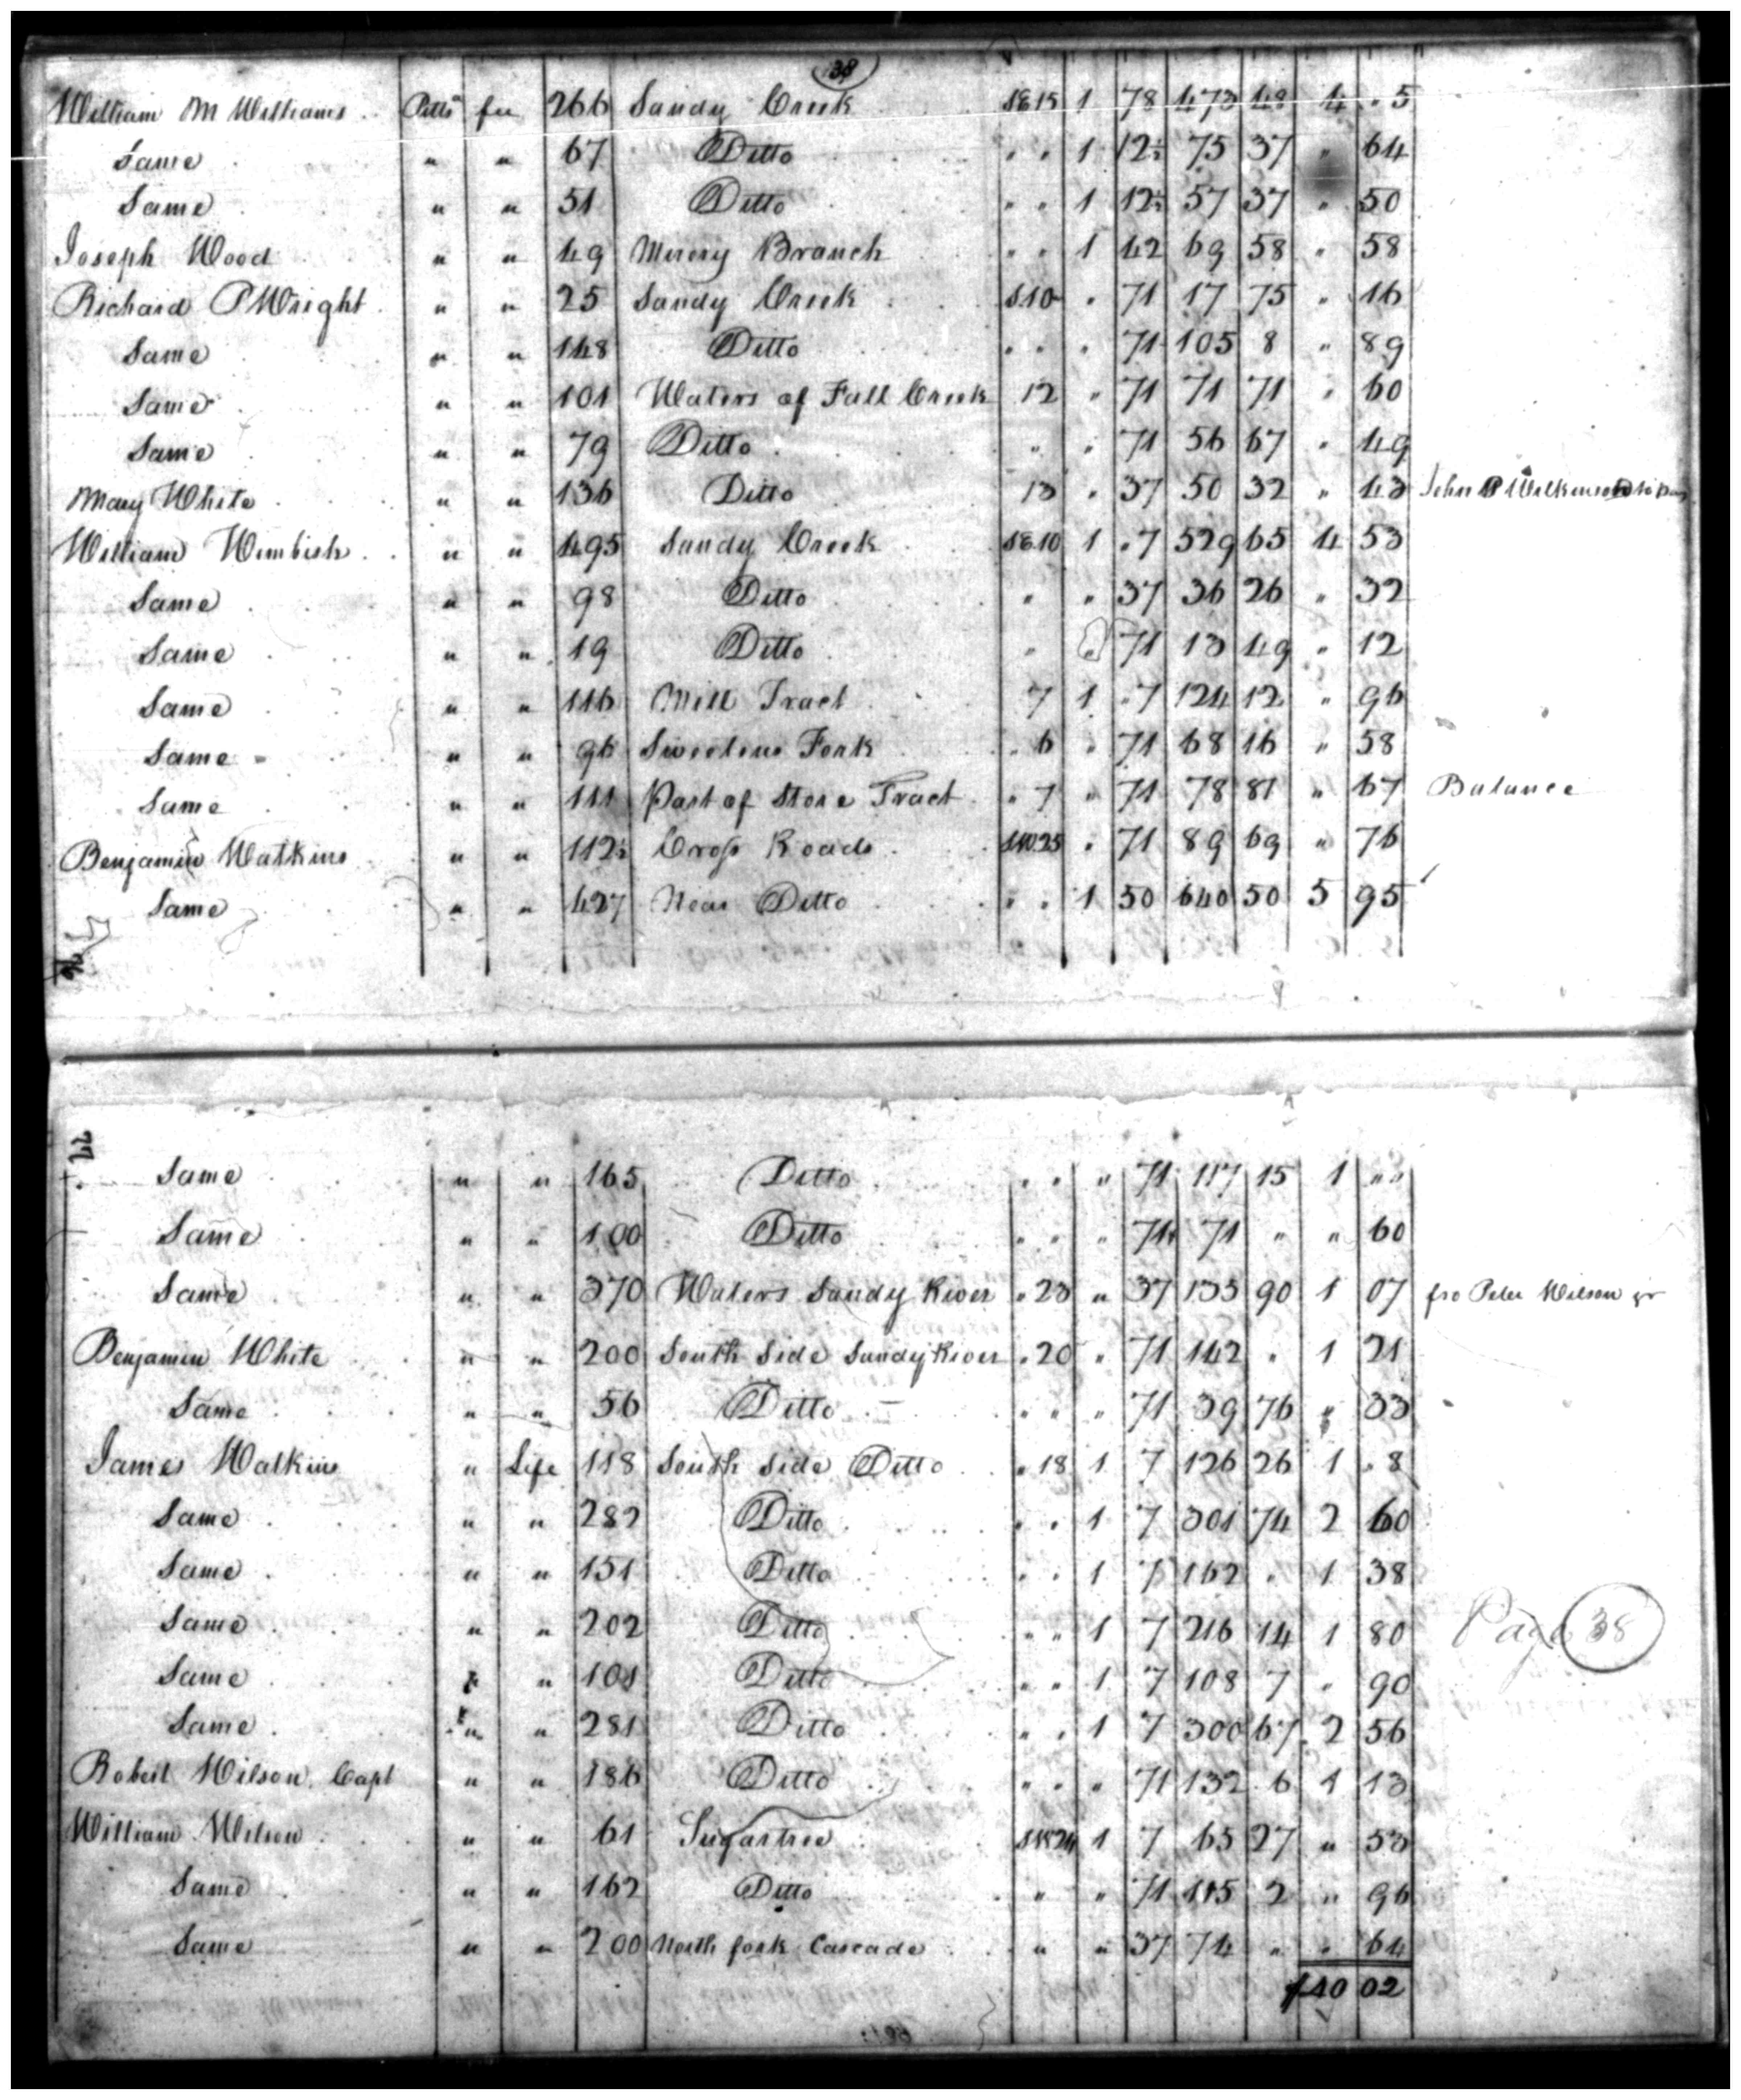 38
William M Williams Pitts fee 266 Sandy Creek S&E 15 1 78 473 48 4 " 5
Same " " 67 Ditto " " 1 12½ 75 37 " 64
Same " " 51 Ditto " " 1 12½ 57 37 " 50
Joseph Wood " " 49 Mirery Branch " " 1 42 69 58 " 58
Richard P Wright " " 25 Sandy Creek S 10 " 71 17 75 " 16
Same " " 148 Ditto " " " 71 105 8 " 89
Same " " 101 Waters of Fall Creek 12 " 71 71 71 " 60
Same " " 79 Ditto " " 71 56 67 " 49
Mary White " " 136 Ditto 13 " 37 50 32 " 43 John P Wilkinson to pay
William Wimbish " " 495 Sandy Creek S&E 10 1 " 7 529 65 4 53
Same " " 98 Ditto " " 37 36 26 " 32
Same " " 19 Ditto " " 71 13 49 " 12
Same " " 116 Mill Tract 7 1 " 7 124 12 " 96
Same " " 96 Sweetens Fork " 6 " 71 68 16 " 58
Same " " 111 Part of Store Tract " 7 " 71 78 81 " 67 Balance
Benjamin Watkins " " 112½ Cross Roads 25 " 71 89 69 " 76
Same " " 427 Near Ditto " " 1 50 640 50 5 95
Same " " 165 Ditto " " " 71 117 15 1 " "
Same " " 100 Ditto " " " 71 71 " " 60
Same " " 370 Waters Sandy River " 23 " 37 135 90 1 07 fro Peter Wilson jr
Benjamin White " " 200 South Side Sandy River " 20 " 71 142 " 1 21
Same " " 56 Ditto " " " 71 39 76 " 33
James Watkins " Life 118 South Side Ditto " 18 1 7 126 26 1 " 8
Same " " 282 Ditto " " 1 7 301 74 2 60
Same " " 151 Ditto " " 1 7 162 " 1 38
Same " " 202 Ditto " " 1 7 216 14 1 80
Page 38
Same " " 101 Ditto " " 1 7 108 7 " 90
Same " " 281 Ditto " " 1 7 300 67 2 56
Robert Wilson Capt " " 186 Ditto " " " 71 132 6 1 13
William Wilson " " 61 Sugartree 24 1 7 65 27 " 53
Same " " 162 Ditto " " 71 115 2 " 96
Same " " 200 North fork Cascade " " 37 74 " " 64
$40 02